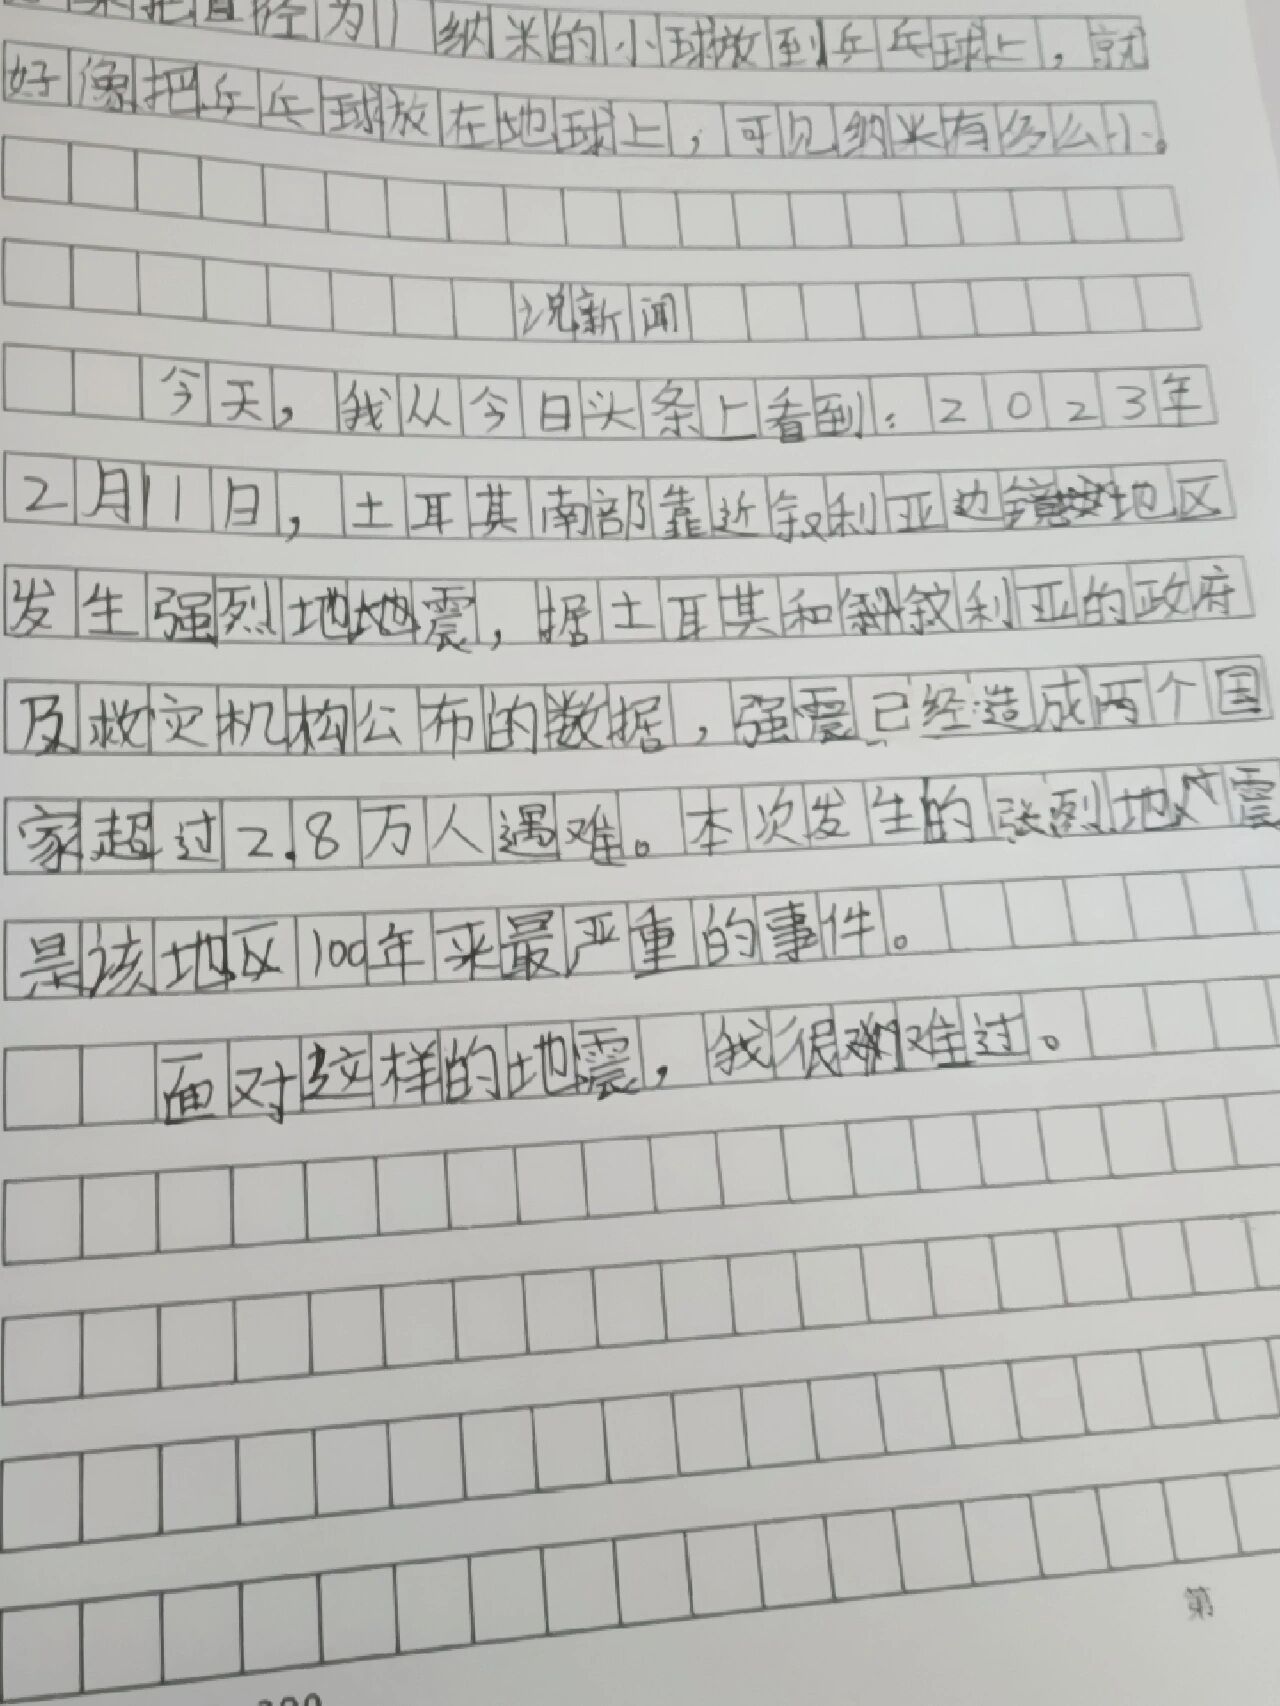 把直径为1纳米的小球放到乒乓球上，就
好像把乒乓球放在地球上，可见纳米有多么小。
说新闻
今天，我从今日头条上看到：2023年
2月11日，土耳其南部靠近叙利亚边境地区
发生强烈地地震，据土耳其和叙利亚的政府
及救灾机构公布的数据，强震已经造成两个国
家超过2.8万人遇难。本次发生的强烈地震
是该地区100年来最严重的事件。
面对这样的地震，我很难过。
第